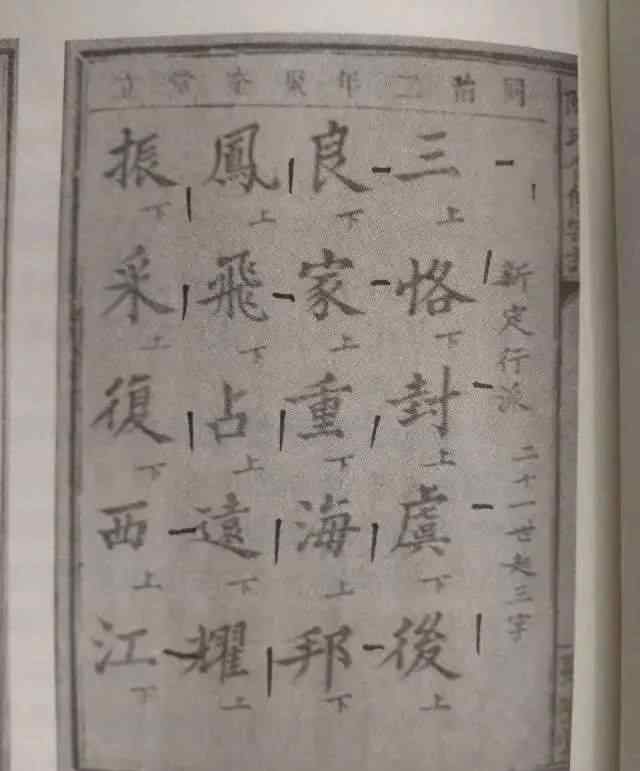 同治二年聚奎堂立
新定行派 二十一世起三字
三上恪下封上虞下後上
良下家上重下海上邦下
鳳上飛下占上遠下耀上
振下采上復下西上江下